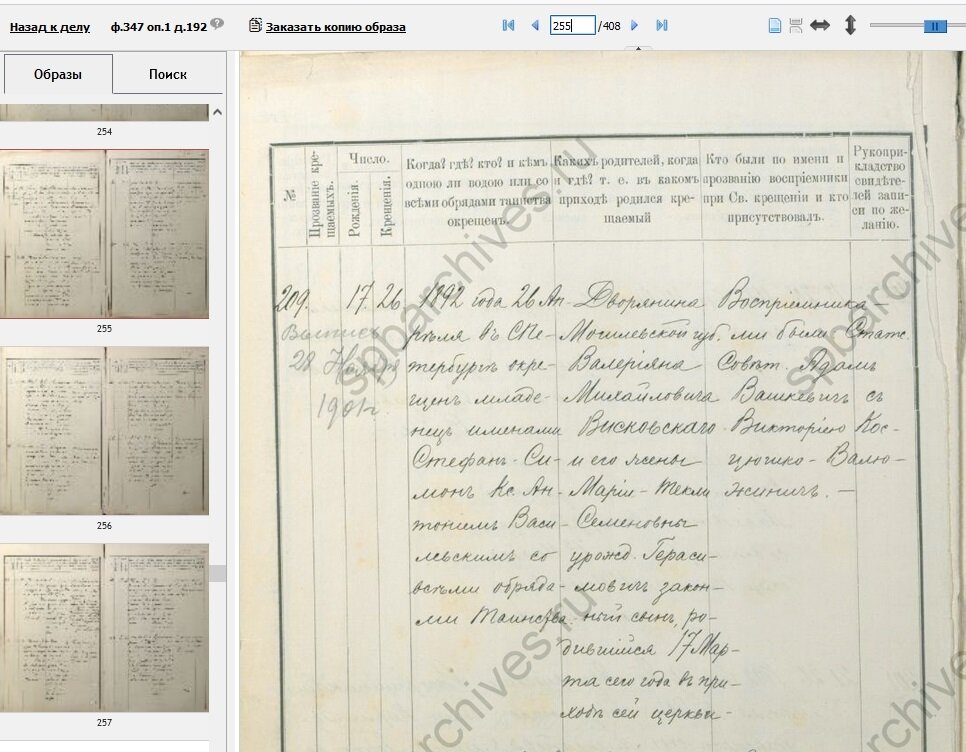 Назад к делу
ф.347 оп.1 д.192
Заказать копию образа
255 /408
Образы
Поиск
254
255
256
257
№
Прозваніе крещаемыхъ.
Число.
Рожденія.
Крещенія.
Когда? гдѣ? кто? и кѣмъ,
одною ли водою или со
всѣми обрядами таинства
окрещенъ.
Какихъ родителей, когда
и гдѣ? т. е. въ какомъ
приходѣ родился кре-
щаемый
Кто были по имени и
прозванію воспріемники
при Св. крещеніи и кто
присутствовалъ.
Рукопри-
кладство
свидѣте-
лей запи-
си по же-
ланію.
209.
Выпись
28 Ноября
1901 г.
17. 26
1892 года 26 Ап-
рѣля въ СПе-
тербургѣ окре-
щенъ младе-
нецъ именами
Стефанъ-Си-
монъ Кс. Ан-
тоніемъ Васи-
левскимъ со
всѣми обряда-
ми Таинства
Дворянина
Могилевской губ.
Валеріяна
Михайловича
Висковскаго
и его жены
Маріи-Текли
Семеновны
урожд. Гераси-
мовичъ закон-
ный сынъ, ро-
дившійся 17 Мар-
та сего года въ при-
ходѣ сей церкви-
Воспріемника
ми были Статс.
Совѣт. Адамъ
Вашкевичъ съ
Викторіею Кос-
цюшко-Валю-
жиничъ. —
spbarchives.ru
spbarchives
spbarchives.ru
archives